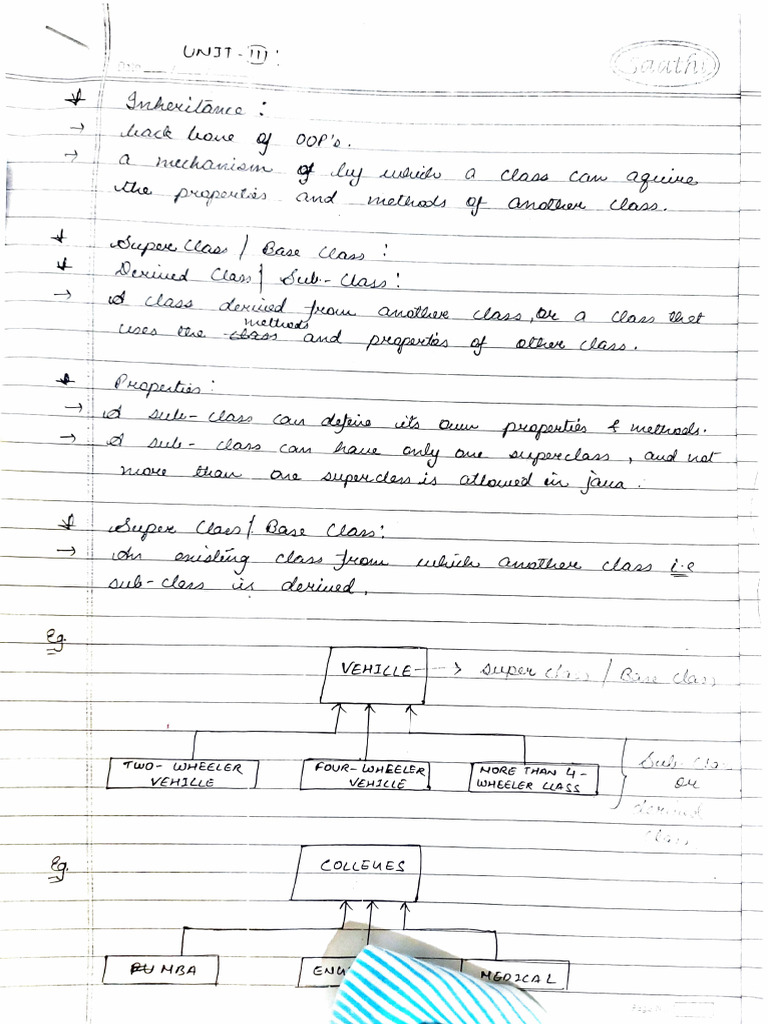 UNIT-III:
Saathi
Date
Inheritance:
→ back bone of OOP's.
→ a mechanism of by which a class can aquire
the properties and methods of another class.
Super Class / Base Class:
Derived Class / Sub-Class:
→ A class derived from another class, or a class that
methods
uses the class and properties of other class.
Properties:
→ A sub-class can define its own properties & methods.
→ A sub-class can have only one superclass, and not
more than one superclass is allowed in java.
Super Class / Base Class:
→ An existing class from which another class i.e
sub-class is derived.
Eg.
VEHILLE → super class / Base Class
TWO-WHEELER
VEHICLE
FOUR-WHEELER
VEHICLE
MORE THAN 4-
WHEELER CLASS
Sub-Cla
or
derived
class
Eg.
COLLEUES
MBA
ENU
MEDICAL
Page